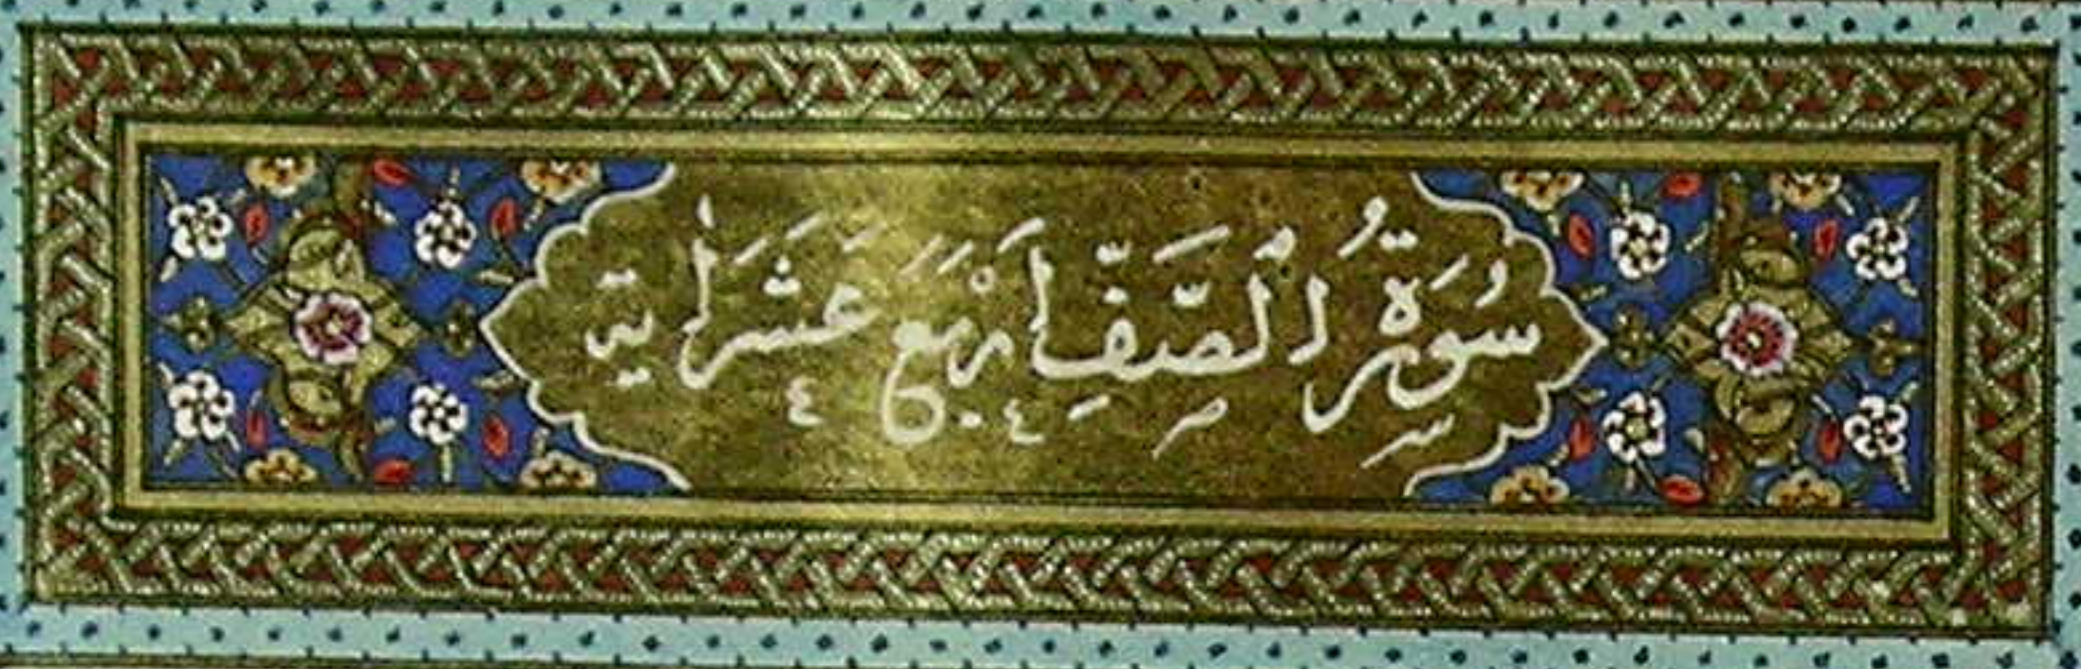 سُورَةُ الْصَّفِّ اَرْبَعَ عَشَرَ اٰية